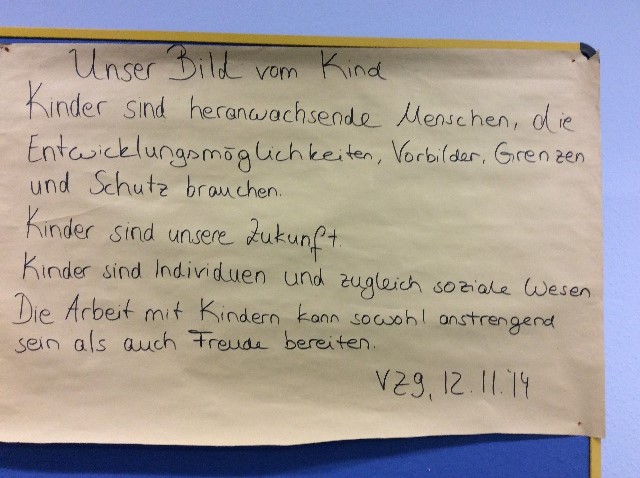 Unser Bild vom Kind
Kinder sind heranwachsende Menschen, die
Entwicklungsmöglichkeiten, Vorbilder, Grenzen
und Schutz brauchen.
Kinder sind unsere Zukunft.
Kinder sind Individuen und zugleich soziale Wesen
Die Arbeit mit Kindern kann sowohl anstrengend
sein als auch Freude bereiten.
VZg, 12.11.14